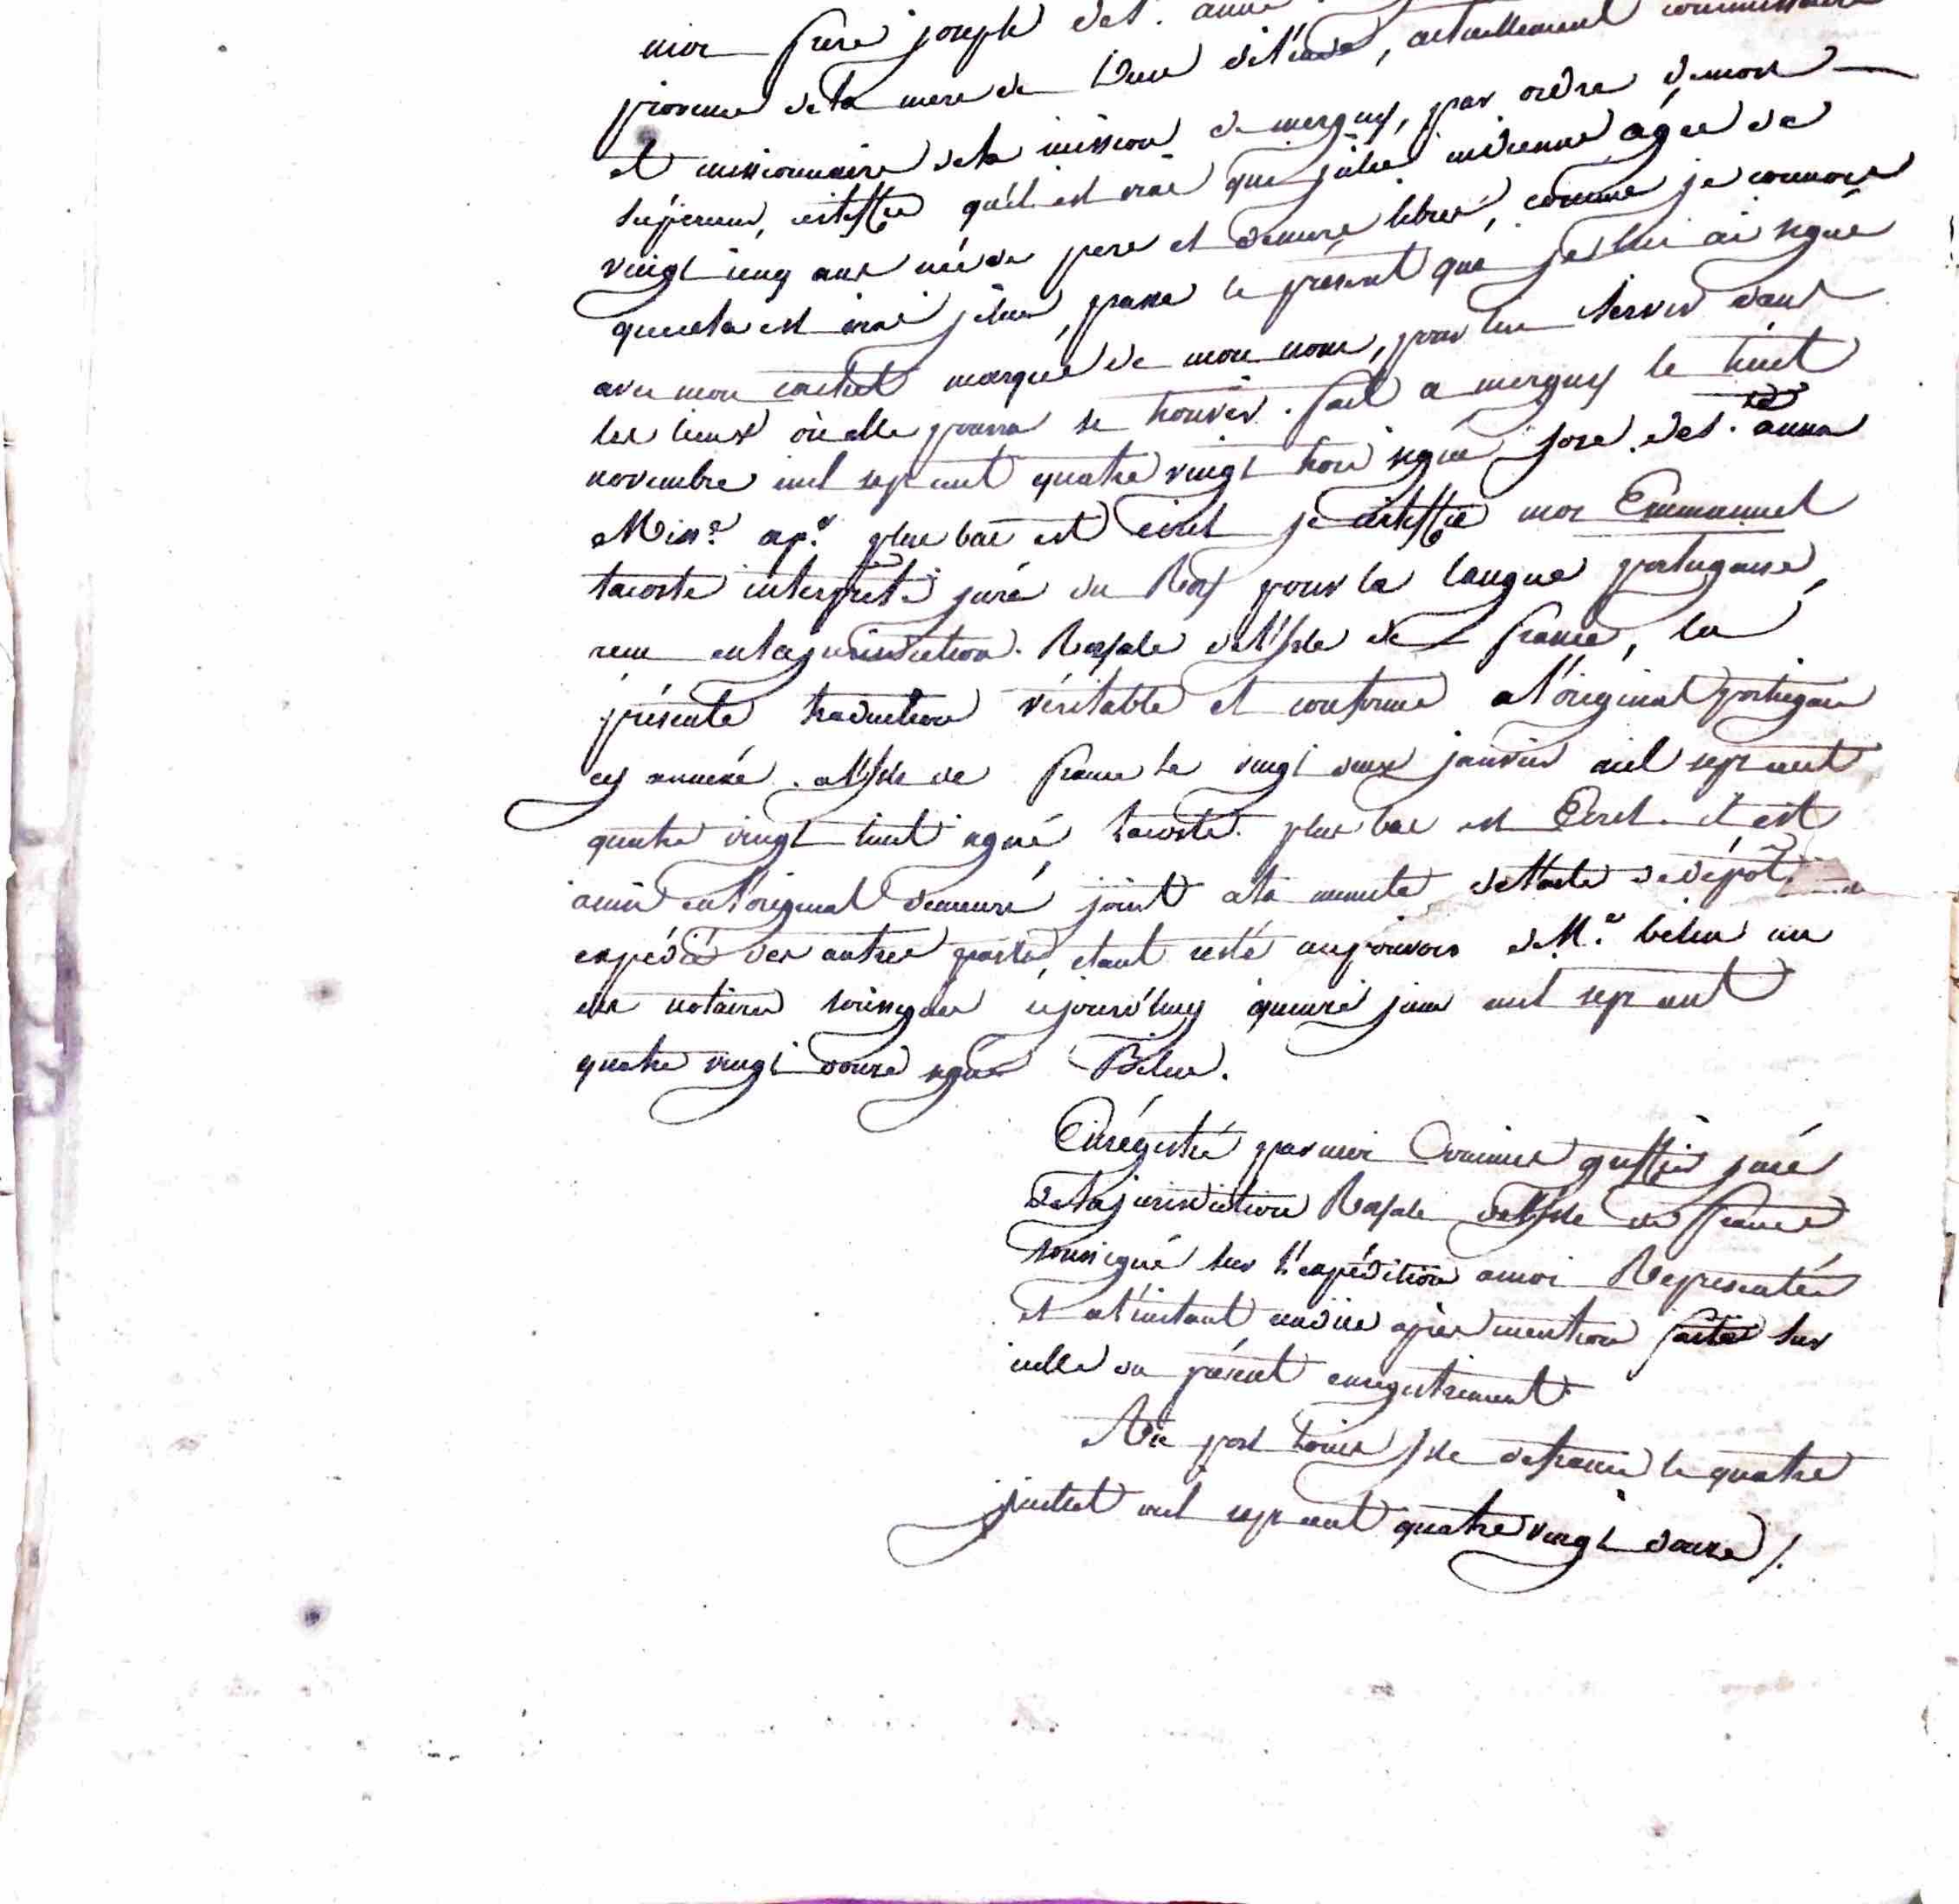 moi frere joseph de St. anne
province de la mere de Dieu de l'inde, actuellement commissaire
et missionnaire de la mission de merguy, par ordre de mon
supérieur, certiffie qu'il est vrai que julie indienne agée de
vingt cinq ans née de pere et de mere libres, comme je connois
que cela est vrai je lui passe le présent que je lui ai signé
avec mon cachet marqué de mon nom, pour lui servir dans
les lieux où elle pourra se trouver. fait a merguy le huit
novembre mil sept cent quatre vingt trois signé jose de St. anna
Miss.e ap.e plus bas est écrit je certiffie moi Emmanuel
lacoste interprete juré du Roy pour la langue portugaise,
recu en la jurisdiction Royale de l'isle de france, la
présente traduction véritable et conforme a l'original portugais
cy annexé. a l'isle de france le vingt deux janvier mil sept cent
quatre vingt huit signé lacoste. plus bas est Ecrit. il est
ainsi en l'original demeuré joint a la minute de l'acte de dépôt
expédié des autres parts, étant resté au pouvoir de M.e belin un
des notaires soussignés cejourd'huy quinze juin mil sept cent
quatre vingt douze signé Belin.
Enrégistré par moi commis greffier juré
de la jurisdiction Royale de l'isle de france
soussigné sur l'expédition a moi Représentée
et a l'instant rendue après mention faite sur
icelle du présent enregistrement
Au port Louis isle de france le quatre
juillet mil sept cent quatre vingt douze /.